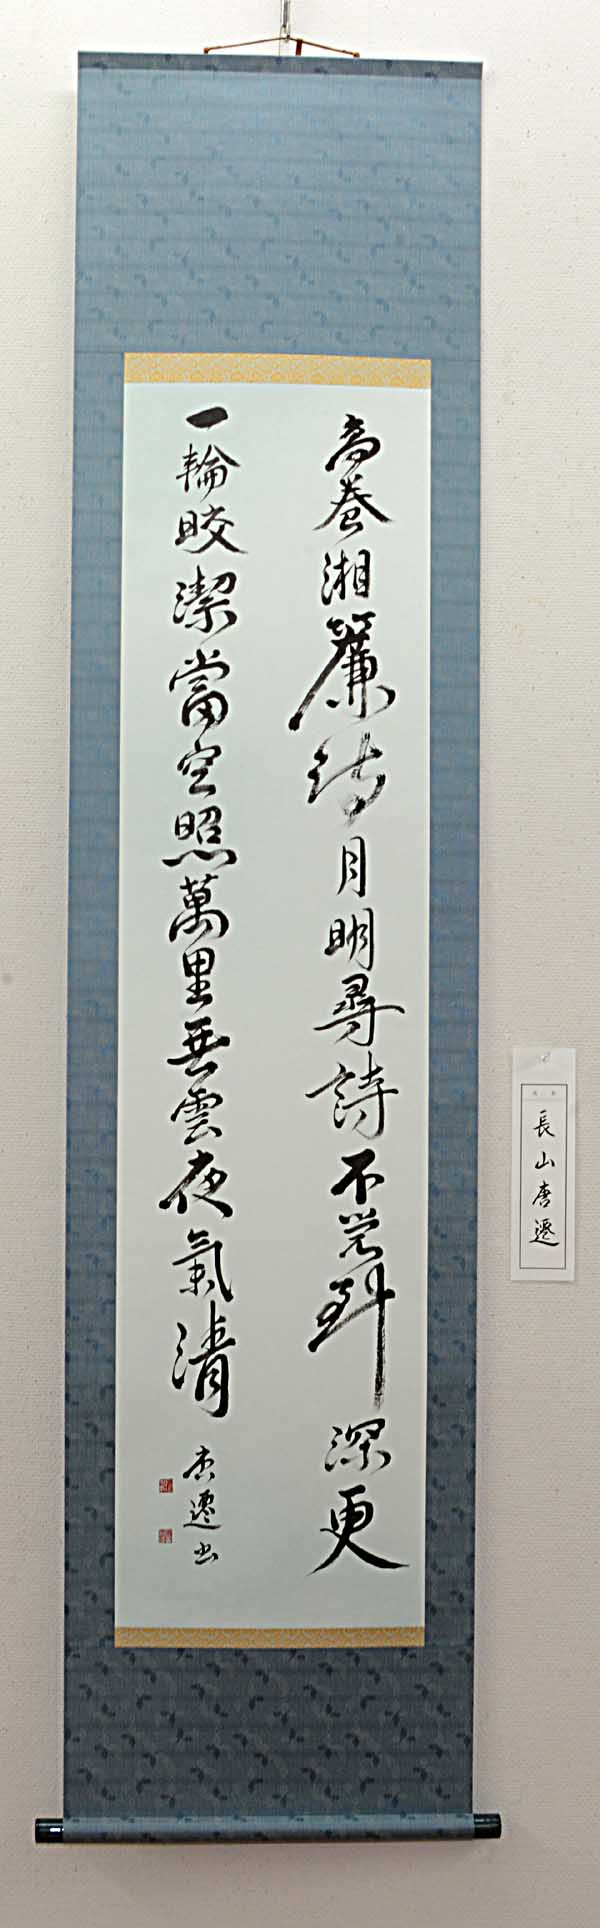 高巻湘簾待月明尋詩不覚到深更
一輪皎潔當空照萬里無雲夜氣清
唐遷書
長山唐遷